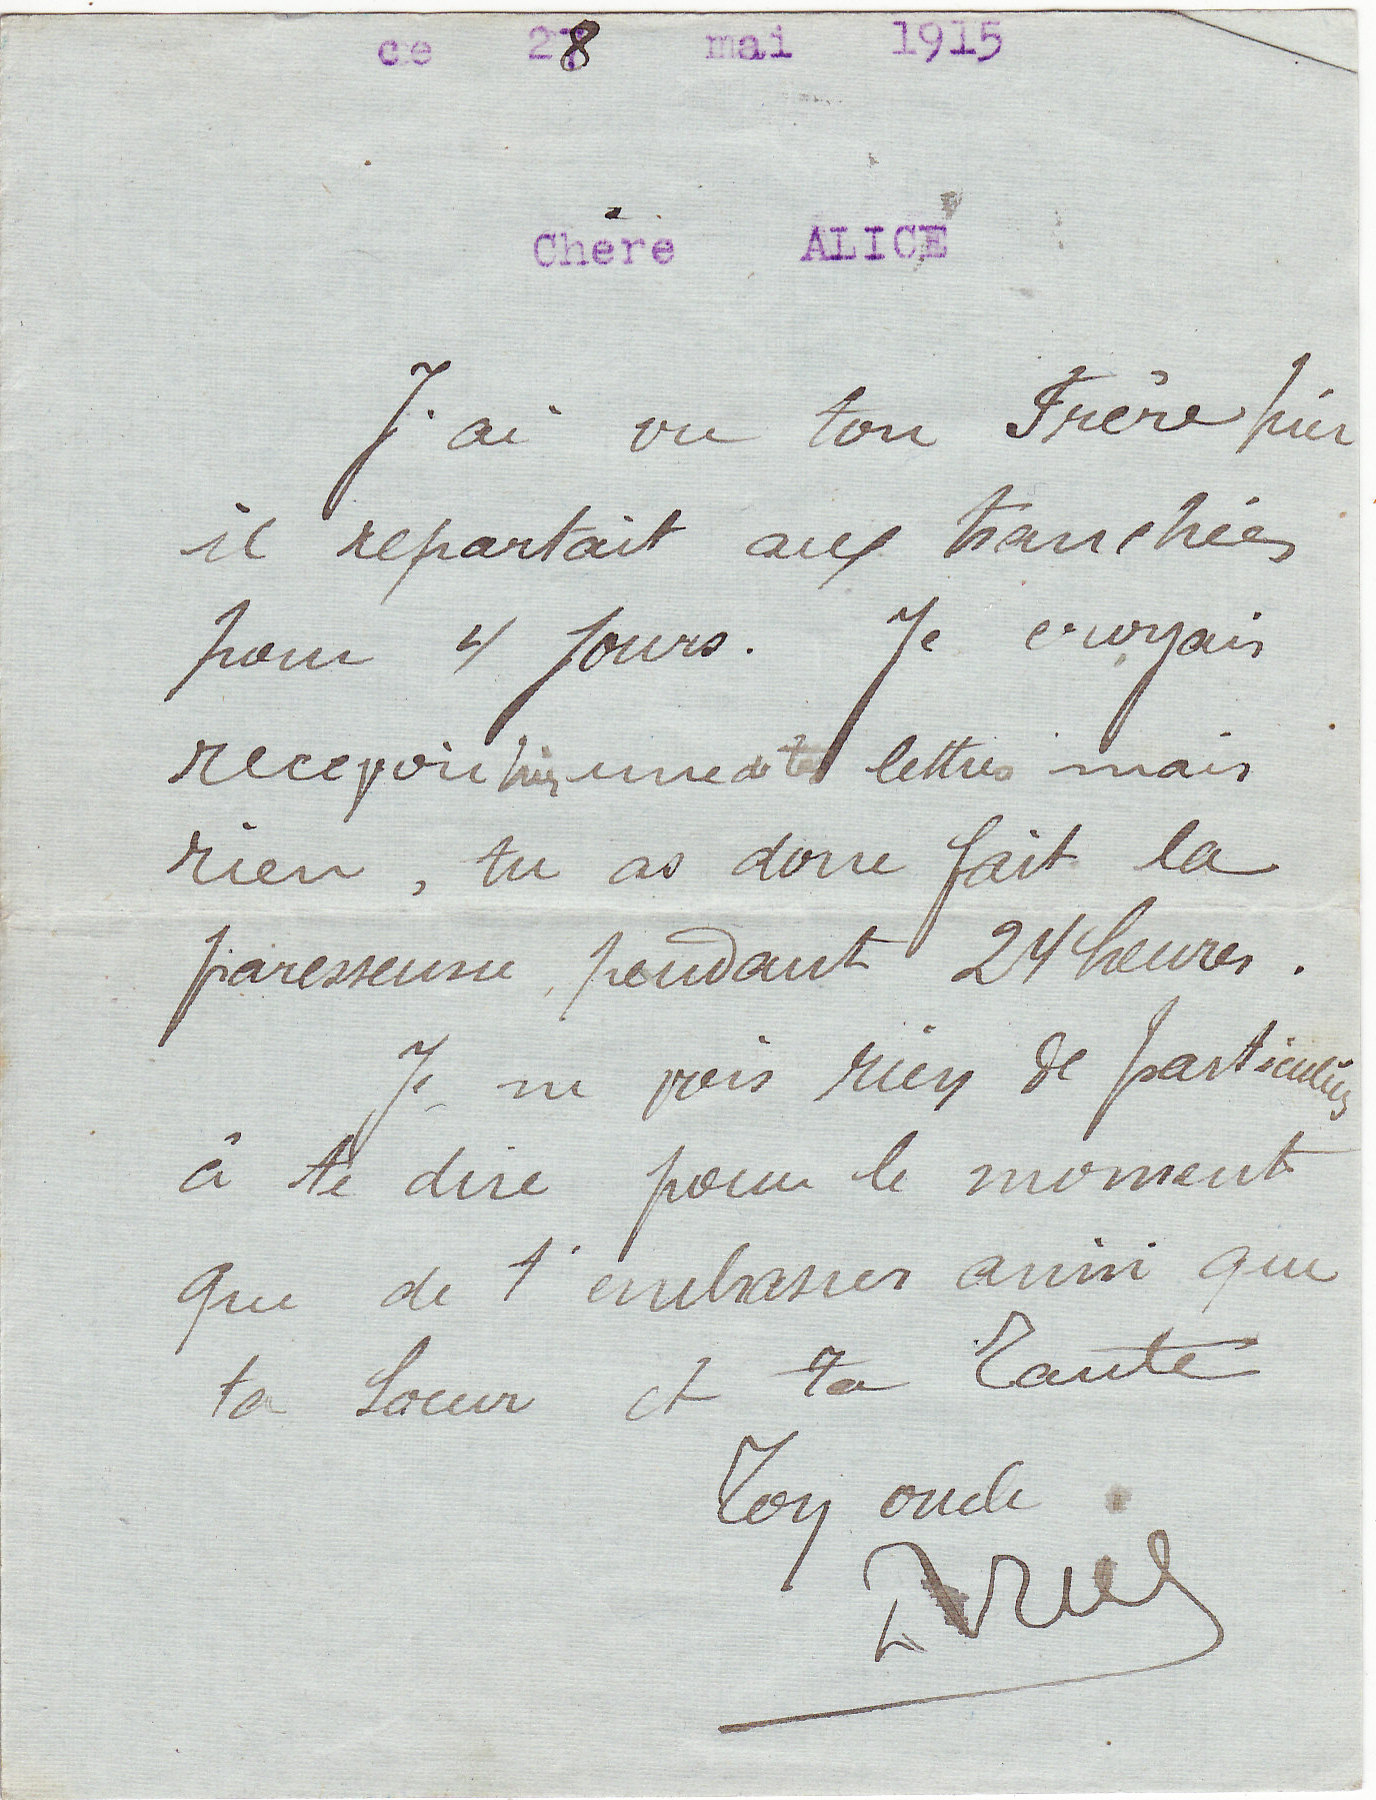 ce 28 mai 1915
Chère ALICE
J'ai vu ton Frère hier
il repartait aux tranchées
pour 4 jours. Je croyais
recevoir hier une de tes lettres mais
rien, tu as donc fait la
paresseuse pendant 24 heures.
Je ne vois rien de particulier
à te dire pour le moment
que de t'embrasser ainsi que
ta Soeur et ta Tante
Ton oncle